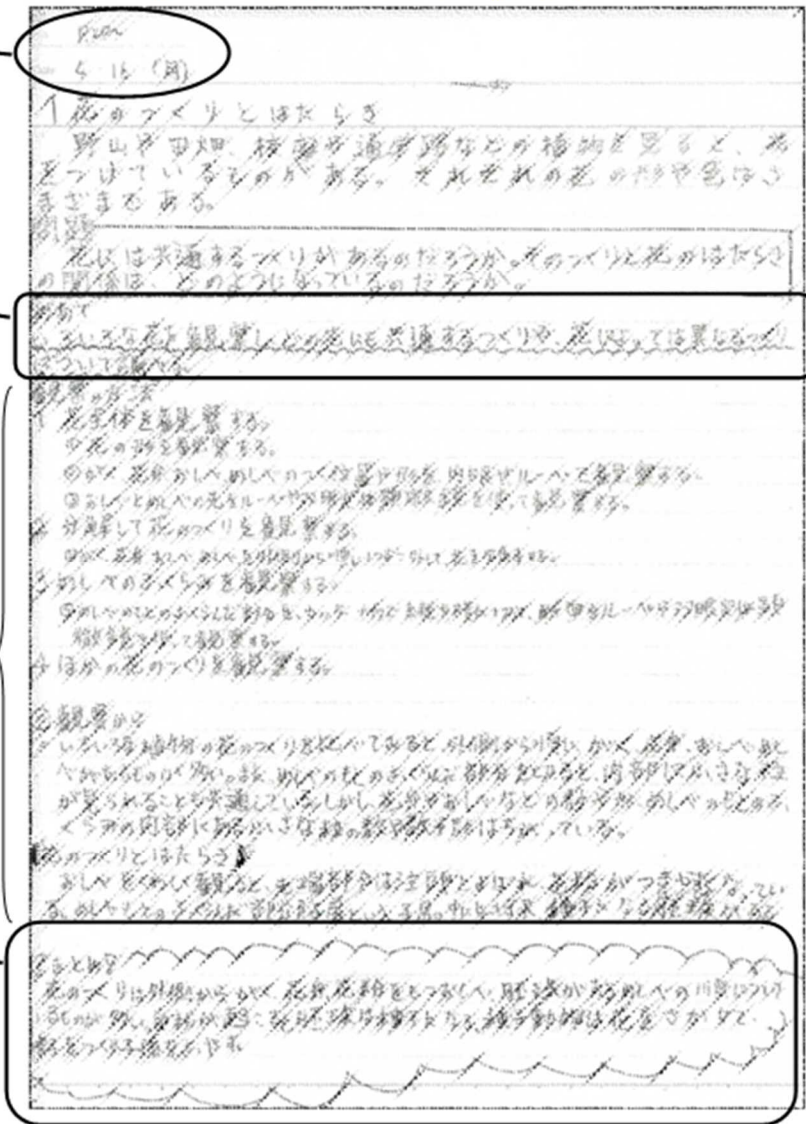 5 16 (月)
1 花のつくりとはたらき
野山や田畑、校庭や通学路などの植物を見ると、花
をつけているものがある。それぞれの花の形や色はさ
まざまである。
問題
花には共通するつくりがあるのだろうか。そのつくりと花のはたらき
の関係は、どのようになっているのだろうか。
めあて
いろいろな花を観察し、どの花にも共通するつくりや、花によっては異なるつくり
について調べる。
観察の方法
1 花全体を観察する。
①花の形を観察する。
②がく、花弁、おしべ、めしべのつく位置や形を、肉眼やルーペで観察する。
③おしべとめしべの先をルーペや双眼実体顕微鏡を使って観察する。
2 分解して花のつくりを観察する。
④がく、花弁、おしべ、めしべを外側から順にはずして、花を
3 めしべのふくらみを観察する。
⑤めしべのもとのふくらんだ部分を、カッターナイフで 断面をルーペや双眼実体顕
微鏡を使って観察する。
4 ほかの花のつくりを観察する。
観察から
いろいろな植物の花のつくりを比べてみると、外側から順に、がく、花弁、おしべ、めし
べがあるものが多い。また、めしべのもとのふくらんだ部分を 内部に小さな粒
が見られることも共通している。しかし、花弁やおしべなどの数や形、めしべのもとのふ
くらみの内部にある小さな粒の数や はちがっている。
【花のつくりとはたらき】
おしべをくわしく観ると、先端部分は とよばれ、花粉が てい
る。めしべのもとのふくらんだ部分を子房という。子房の中には将来種子となる胚珠がある。
まとめ
花のつくりは外側から、がく、花弁、花粉をもつおしべ、胚珠があるめしべの順について
いるものが多い。受粉が起こると胚珠は種子となる。種子植物は花をさかせて、
種子をつくり子孫をふやす。